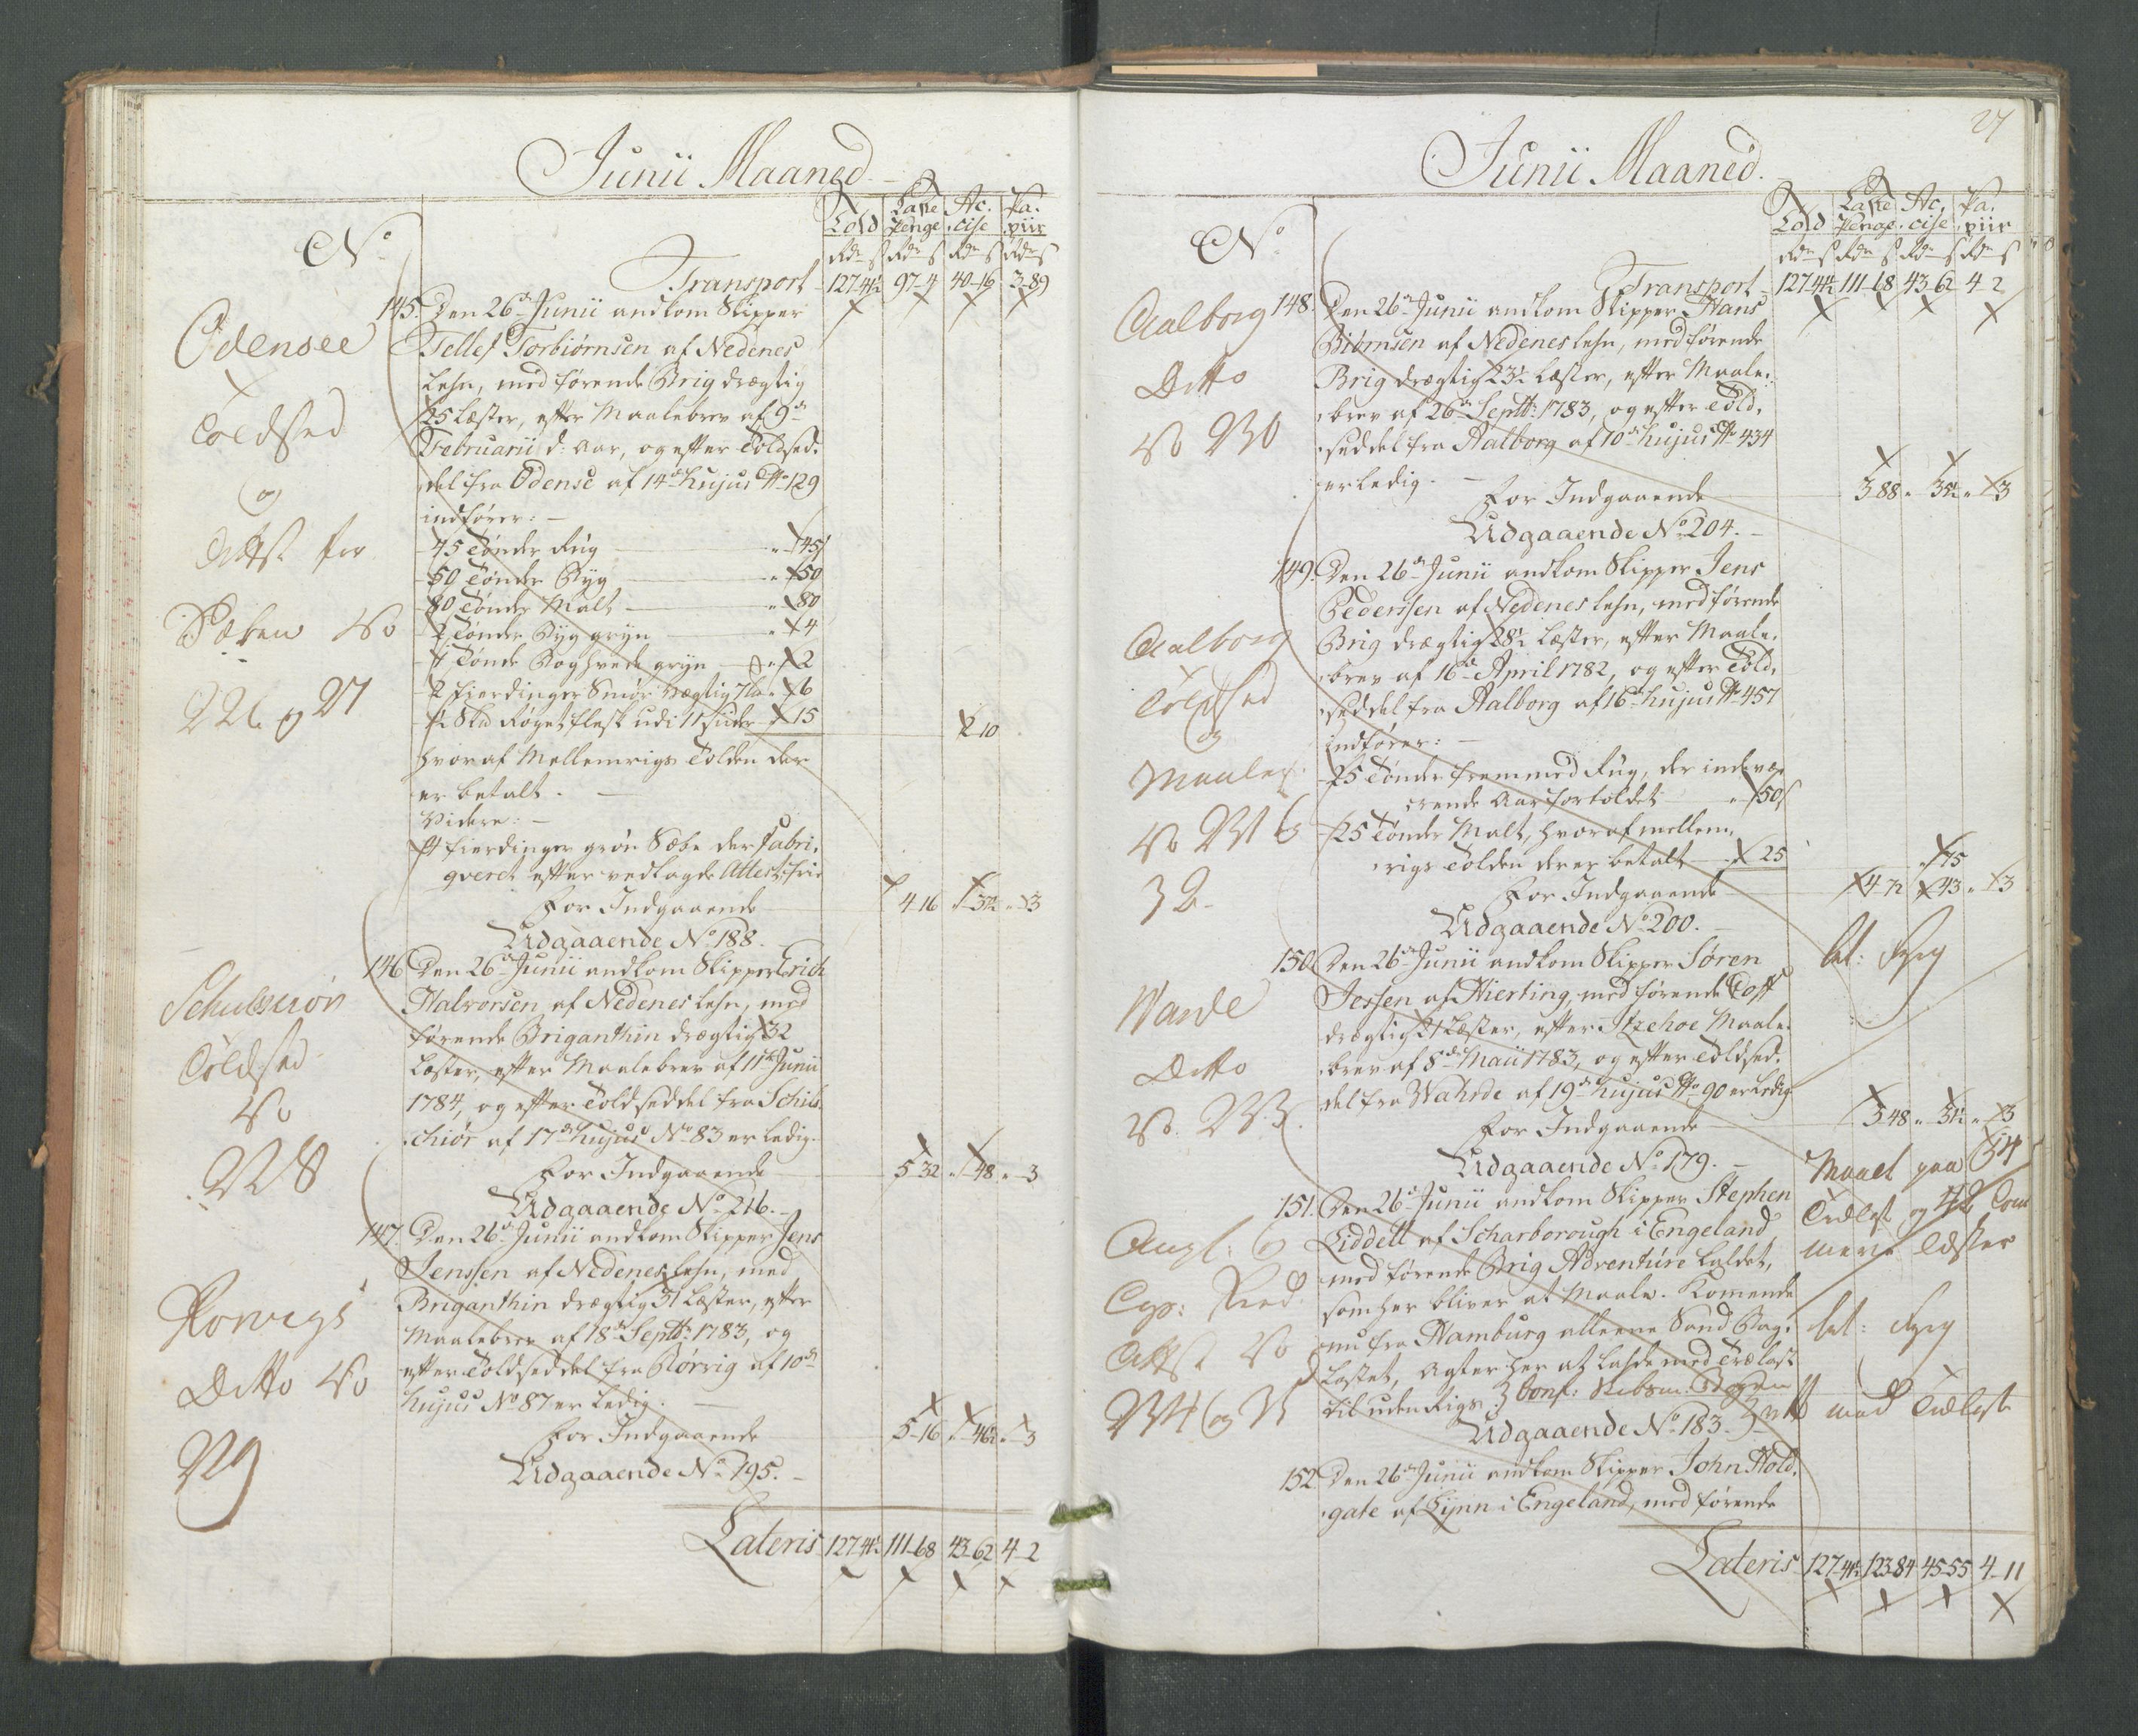 Junii Maaned
No
Told
Laste Penge
Ac. cise
Pa. piir
Rdr s Rdr s Rdr s Rdr s
Transport 127-41½ 97-4 40-16 3-89
Odensee
Toldsed
og
Attest for
Sæben No
226 og 27
145. Den 26de Junii andkom Skipper
Tellef Torbiørnsen af Nedenes
Lehn, med førende Brig drægtig
25 Læster, efter Maalebrev af 9de
Februarii d: aar, og efter Toldsed.
del fra Odense af 14de hujus No 129
indfører:
45 Tønder Rug " 45
50 Tønder Byg " 50
80 Tønder Malt " 80
2 Tønder Byg gryn " 4
1 Tønde Boghvede gryn " 2
2 fierdinger Smør " 6
Røget flesk udi 11 sider 15
2 10
hvoraf Mellemrigs Tolden der
er betalt.
Videre:
4 fierdinger grøn Sæbe der fabri.
qveret efter vedlagde Attest, frie
For Indgaaende 4 16 " 37½ " 3
Udgaaende No 188.
Toldsed
No
228
146 Den 26de Junii andkom Skipper Erich
Halvorsen af Nedenes Lehn, med
førende Briganthin drægtig 32
Læster, efter Maalebrev af 11te Junii
1784, og efter Toldseddel fra Schils.
chiør af 17de hujus No 83 er ledig.
For Indgaaende 5 32 " 48 " 3
Udgaaende No 216.
Rorvigs
Ditto No
229
147. Den 26de Junii andkom Skipper Jens
Jenssen af Nedenes Lehn, med
Briganthin drægtig 31 Læster, efter
Maalebrev af 18de Septbr: 1783, og
efter Toldseddel fra Rørvig af 10de
hujus No 87 er ledig.
For Indgaaende 5-16 " 46½ " 3
Udgaaende No 195.
Lateris 127-41½ 111-68 43-62 4-2
27
Junii Maaned.
No
Told
Laste Penge
Ac. cise
Pa. piir
Rdr s Rdr s Rdr s Rdr s
Transport 127-41½ 111-68 43-62 4 2
Aalborg
Ditto
No 230
148. Den 26de Junii andkom Skipper Hans
Biørnsen af Nedenes Lehn, med førende
Brig drægtig 23½ Læster, efter Maale.
brev af 26de Septbr: 1783, og efter Told.
seddel fra Aalborg af 10de hujus No 434
er ledig.
For Indgaaende 3 88 " 35½ " 3
Udgaaende No 204.
Aalborg
Toldsed
og
Maalex
No 231 &
32.
149. Den 26de Junii andkom Skipper Jens
Pederssen af Nedenes Lehn, med førende
Brig drægtig 28½ Læster, efter Maale.
brev af 16de April 1782, og efter Told.
seddel fra Aalborg af 16de hujus No 457
indfører:
25 Tønder fremmed Rug, der indevæ.
rende Aar fortoldet " 50
25 Tønder Malt, hvoraf mellem.
rigs Tolden der er betalt 25
" 75
For Indgaaende 4 72 " 43 " 3
Udgaaende No 200.
Warde
Ditto
No. 233.
150. Den 26de Junii andkom Skipper Søren
Jessen af Hierting, med førende Toff
drægtig 21 Læster, efter Itzehoe Maale.
brev af 8de Maii 1783, og efter Toldsed.
del fra Wahrde af 19de hujus No 90 er ledig
For Indgaaende 3 48 " 31½ " 3
Udgaaende No 179.
Maalt paa 54
Trælast og 42 Com
merce Læster
Attst No
234 og 35
151. Den 26de Junii andkom Skipper Stephen
Liddell af Scharborough i Engeland,
med førende Brig Adventure kaldet,
som her bliver at Maale. Komende
nu fra Hamburg alleene Sand Bag.
lastet, agter her at lahde med Trælast
til uden Rigs.
Udgaaende No 183.
med Trælast
152. Den 26de Junii andkom Skipper John Hold.
gate af Lynn i Engeland, med førende
Lateris 127-41½ 123-84 45-55 4-11